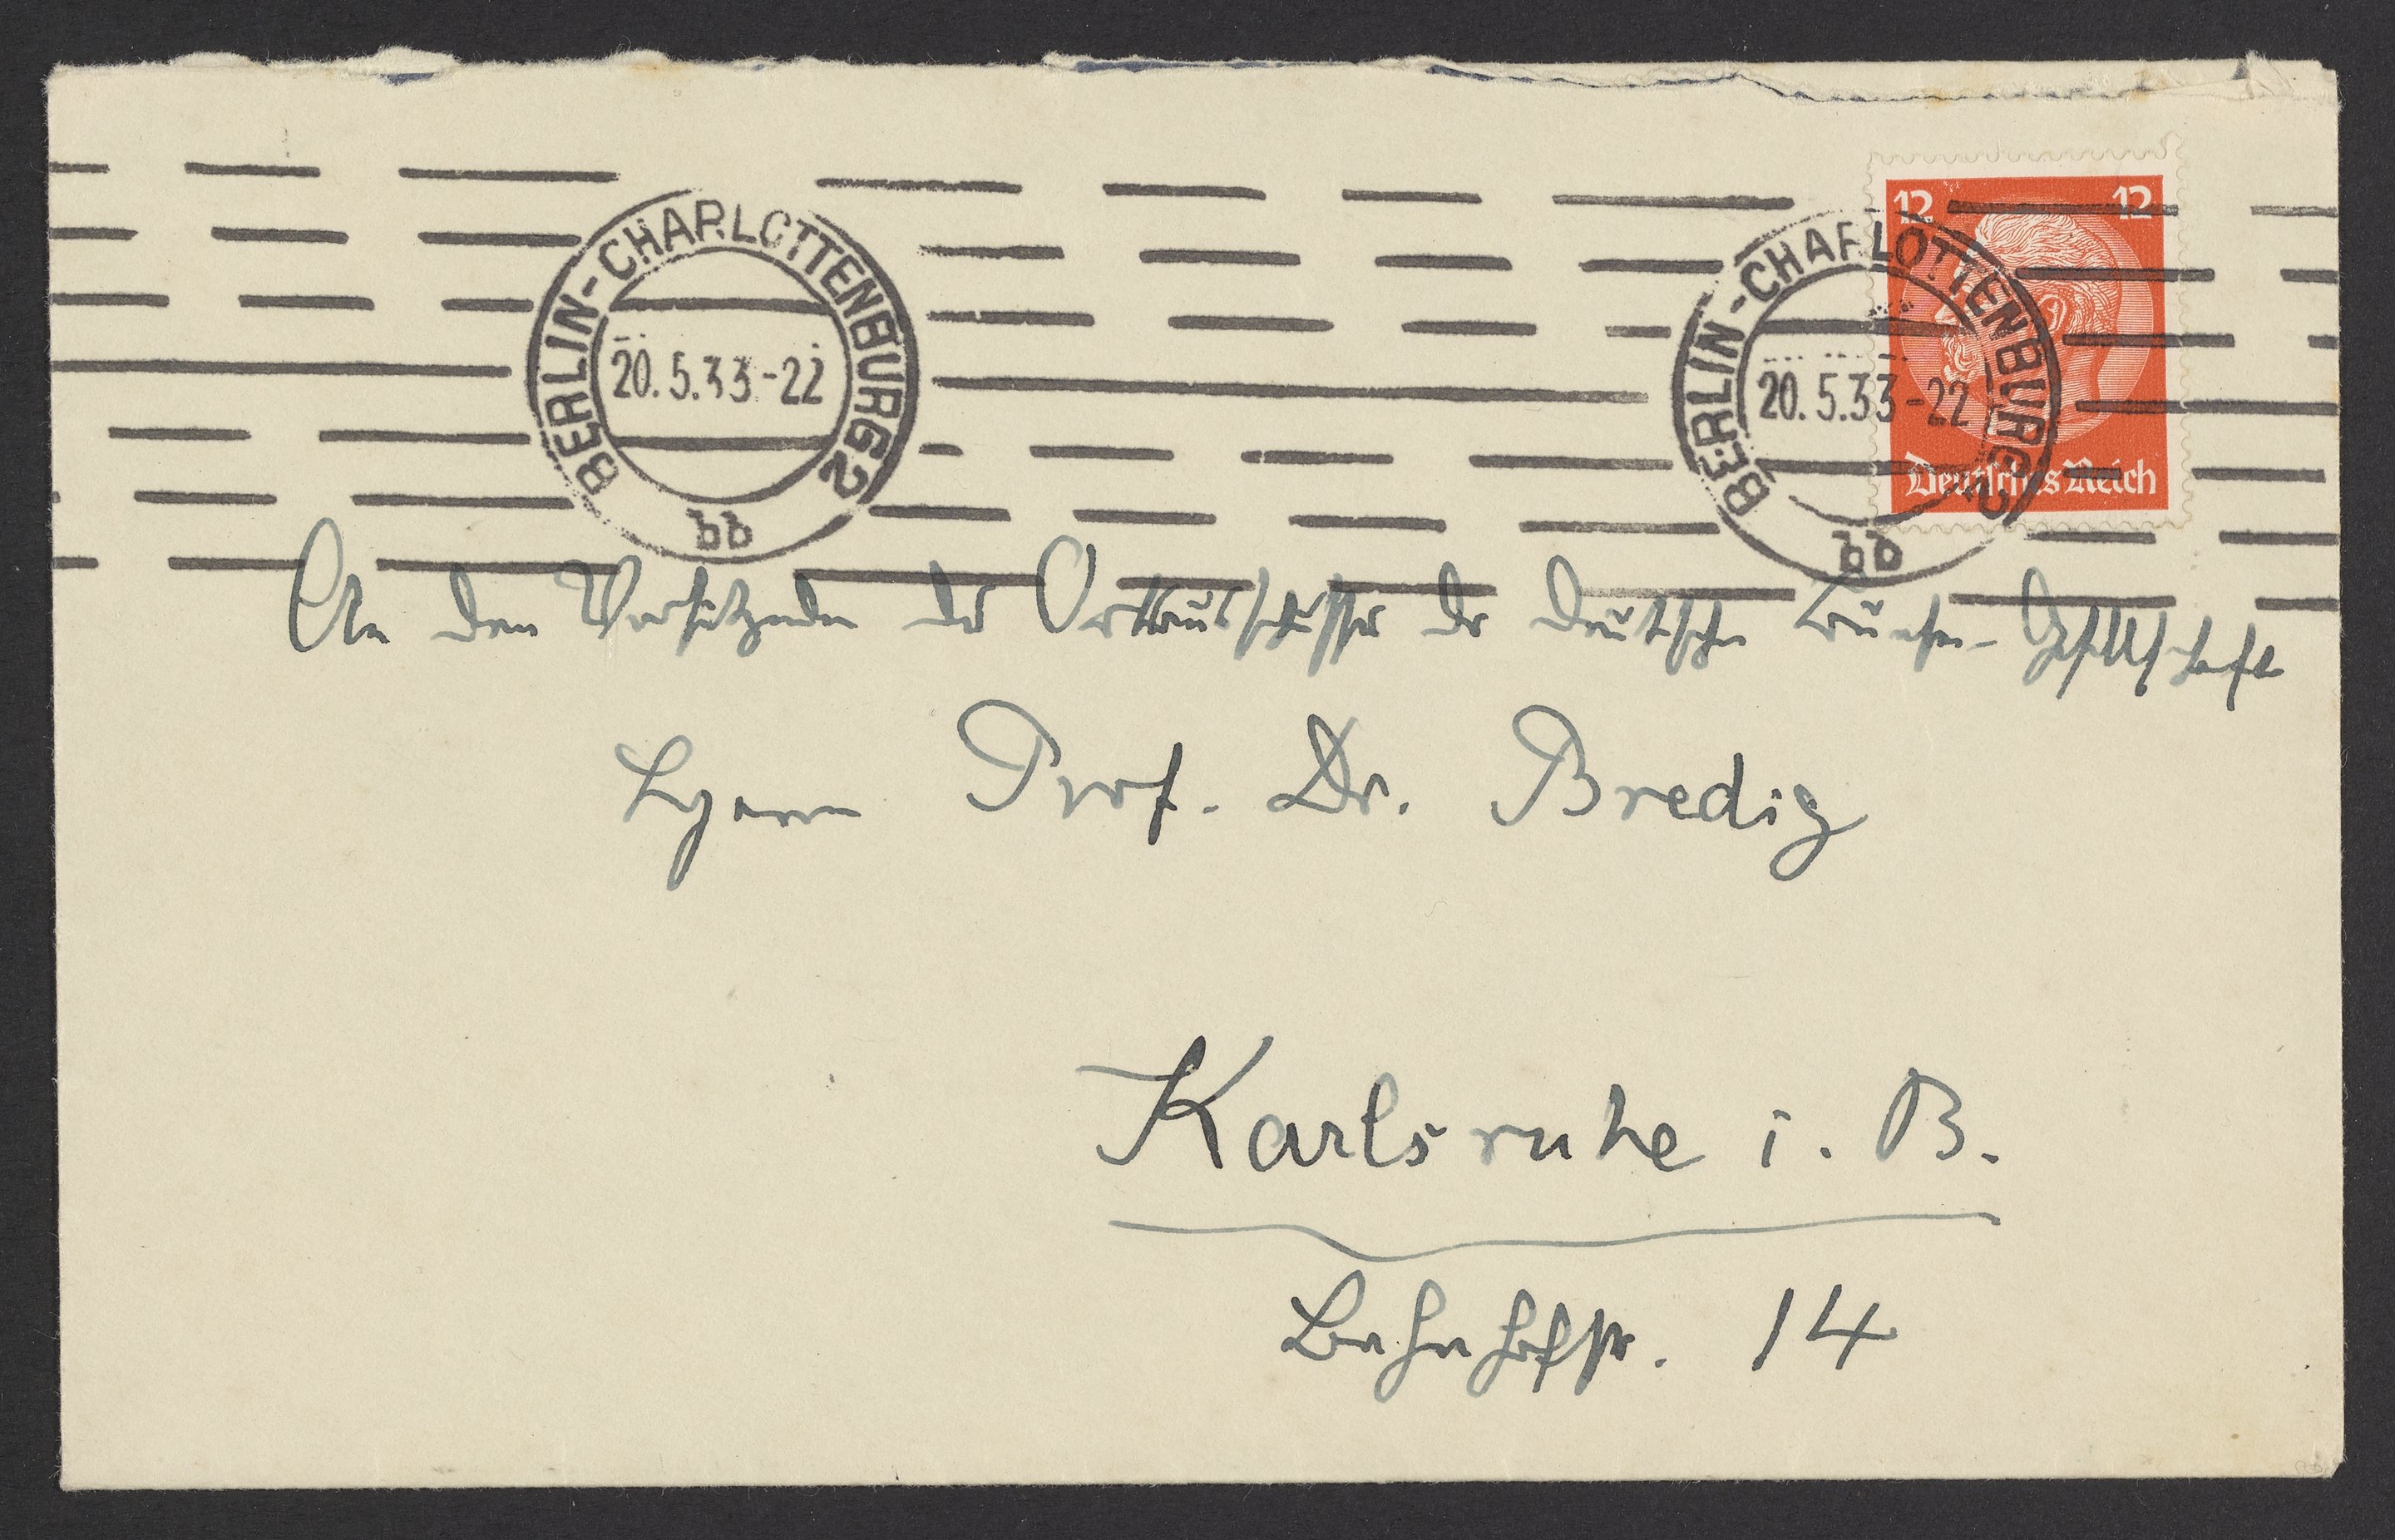 BERLIN-CHARLOTTENBURG 2
20.5.33-22
bb
12 12
Deutsches Reich
BERLIN-CHARLOTTENBURG 2
20.5.33-22
bb
An den Vorsitzenden des Ortsausschusses der Deutschen Bunsen-Gesellschaft
Herrn Prof. Dr. Bredig
Karlsruhe i. B.
Bahnhofstr. 14